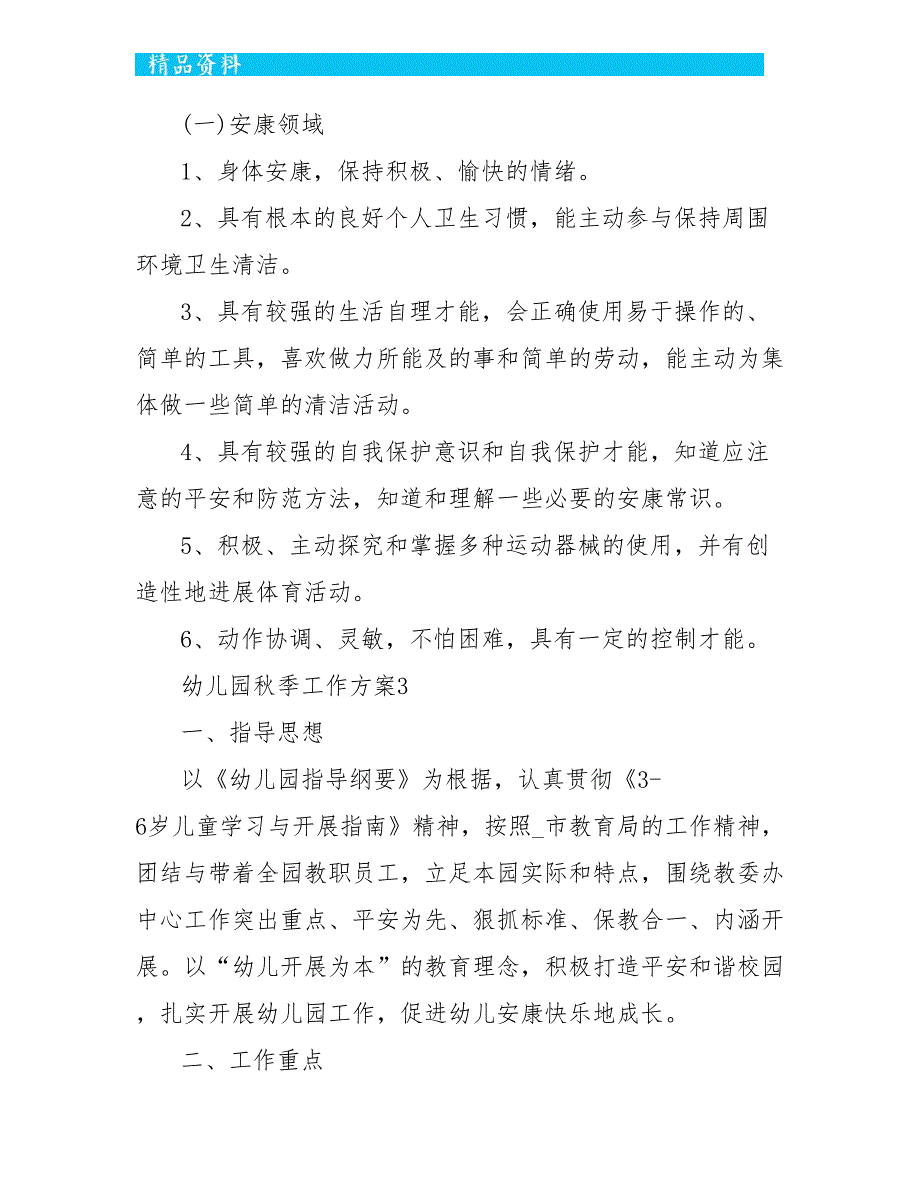 精品资料
(一)安康领域
1、身体安康，保持积极、愉快的情绪。
2、具有根本的良好个人卫生习惯，能主动参与保持周围
环境卫生清洁。
3、具有较强的生活自理才能，会正确使用易于操作的、
简单的工具，喜欢做力所能及的事和简单的劳动，能主动为集
体做一些简单的清洁活动。
4、具有较强的自我保护意识和自我保护才能，知道应注
意的平安和防范方法，知道和理解一些必要的安康常识。
5、积极、主动探究和掌握多种运动器械的使用，并有创
造性地进展体育活动。
6、动作协调、灵敏，不怕困难，具有一定的控制才能。
幼儿园秋季工作方案3
一、指导思想
以《幼儿园指导纲要》为根据，认真贯彻《3-
6岁儿童学习与开展指南》精神，按照_市教育局的工作精神，
团结与带着全园教职员工，立足本园实际和特点，围绕教委办
中心工作突出重点、平安为先、狠抓标准、保教合一、内涵开
展。以“幼儿开展为本”的教育理念，积极打造平安和谐校园
，扎实开展幼儿园工作，促进幼儿安康快乐地成长。
二、工作重点